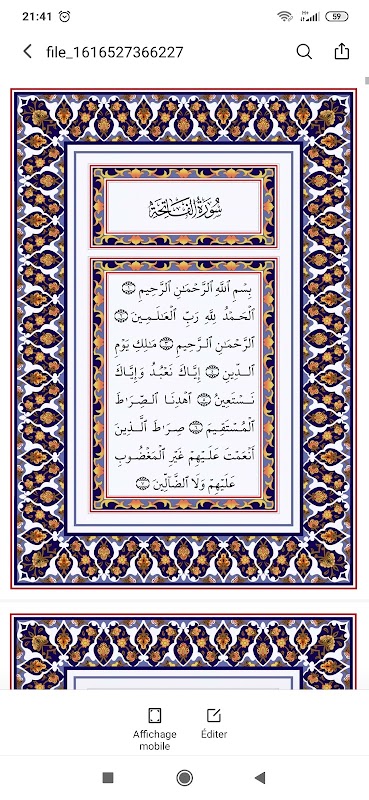 21:41
59
file_1616527366227
سُورَةُ الفَاتِحَةِ
بِسْمِ ٱللَّهِ ٱلرَّحْمَـٰنِ ٱلرَّحِيمِ ۝١
ٱلْحَمْدُ لِلَّهِ رَبِّ ٱلْعَـٰلَمِينَ ۝٢
ٱلرَّحْمَـٰنِ ٱلرَّحِيمِ ۝٣ مَـٰلِكِ يَوْمِ
ٱلدِّينِ ۝٤ إِيَّاكَ نَعْبُدُ وَإِيَّاكَ
نَسْتَعِينُ ۝٥ ٱهْدِنَا ٱلصِّرَٰطَ
ٱلْمُسْتَقِيمَ ۝٦ صِرَٰطَ ٱلَّذِينَ
أَنْعَمْتَ عَلَيْهِمْ غَيْرِ ٱلْمَغْضُوبِ
عَلَيْهِمْ وَلَا ٱلضَّآلِّينَ ۝٧
Affichage mobile
Éditer